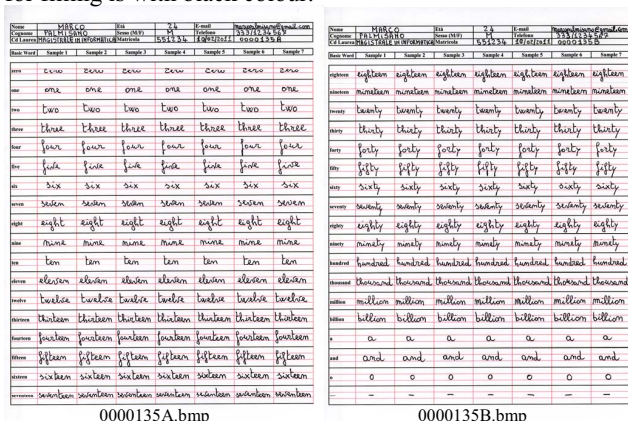 for filling is with black colour.
Nome MARCO Età 24 E-mail
Cognome PALMISANO Sesso (M/F) M Telefono 333/1234567
Cd Laurea MAGISTRALE IN INFORMATICA Matricola 551234 10/02/2011 0000135A
Basic Word Sample 1 Sample 2 Sample 3 Sample 4 Sample 5 Sample 6 Sample 7
zero zero zero zero zero zero zero zero
one one one one one one one one
two two two two two two two two
three three three three three three three three
four four four four four four four four
five five five five five five five five
six six six six six six six six
seven seven seven seven seven seven seven seven
eight eight eight eight eight eight eight eight
nine nine nine nine nine nine nine nine
ten ten ten ten ten ten ten ten
eleven eleven eleven eleven eleven eleven eleven eleven
twelve twelve twelve twelve twelve twelve twelve twelve
thirteen thirteen thirteen thirteen thirteen thirteen thirteen thirteen
fourteen fourteen fourteen fourteen fourteen fourteen fourteen fourteen
fifteen fifteen fifteen fifteen fifteen fifteen fifteen fifteen
sixteen sixteen sixteen sixteen sixteen sixteen sixteen sixteen
seventeen seventeen seventeen seventeen seventeen seventeen seventeen seventeen
0000135A.bmp
Nome MARCO Età 24 E-mail
Cognome PALMISANO Sesso (M/F) M Telefono 333/1234567
Cd Laurea MAGISTRALE IN INFORMATICA Matricola 551234 10/02/2011 0000135B
Basic Word Sample 1 Sample 2 Sample 3 Sample 4 Sample 5 Sample 6 Sample 7
eighteen eighteen eighteen eighteen eighteen eighteen eighteen eighteen
nineteen nineteen nineteen nineteen nineteen nineteen nineteen nineteen
twenty twenty twenty twenty twenty twenty twenty twenty
thirty thirty thirty thirty thirty thirty thirty thirty
forty forty forty forty forty forty forty forty
fifty fifty fifty fifty fifty fifty fifty fifty
sixty sixty sixty sixty sixty sixty sixty sixty
seventy seventy seventy seventy seventy seventy seventy seventy
eighty eighty eighty eighty eighty eighty eighty eighty
ninety ninety ninety ninety ninety ninety ninety ninety
hundred hundred hundred hundred hundred hundred hundred hundred
thousand thousand thousand thousand thousand thousand thousand thousand
million million million million million million million million
billion billion billion billion billion billion billion billion
a a a a a a a a
and and and and and and and and
o o o o o o o o
– – – – – – – –
0000135B.bmp